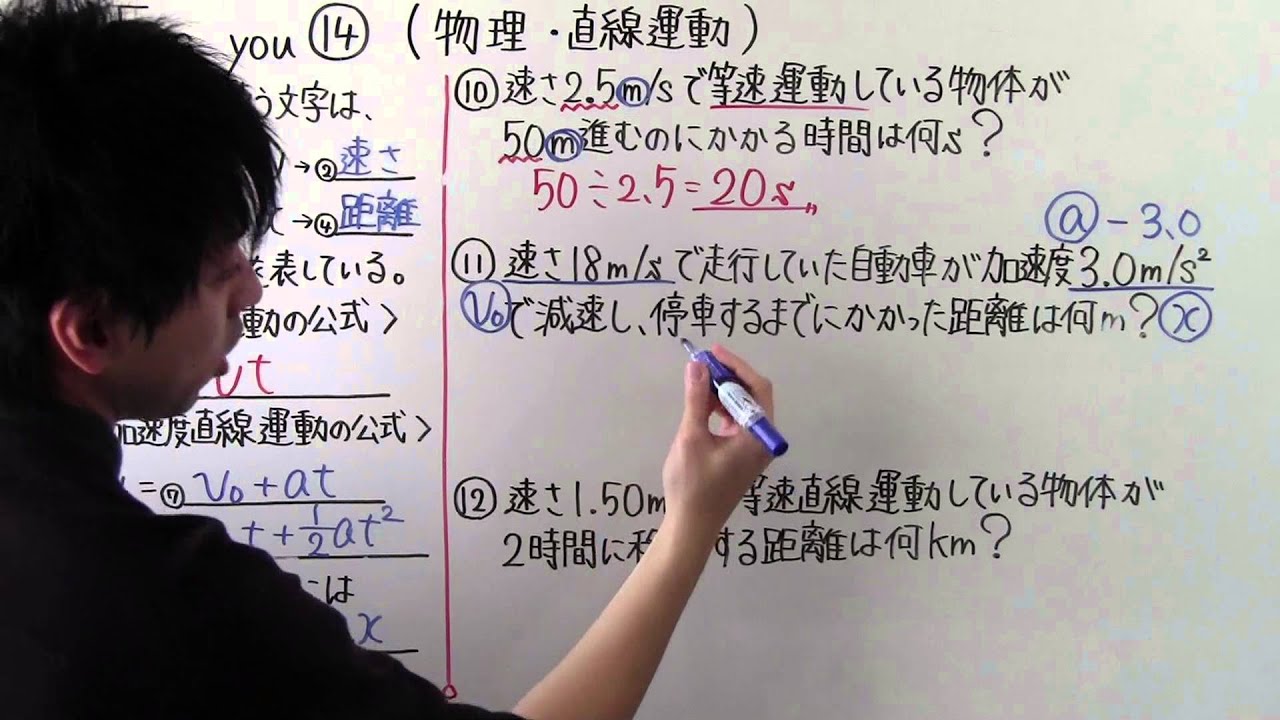 you ⑭ (物理・直線運動)
う文字は、
→②速さ
→④距離
表している。
動の公式〉
vt
加速度直線運動の公式〉
=⑦ v₀+at
t+½at²
は
x
⑩ 速さ2.5m/sで等速運動している物体が
50m進むのにかかる時間は何s?
50÷2.5=20s
ⓐ-3.0
⑪ 速さ18m/sで走行していた自動車が加速度3.0m/s²
v₀で減速し、停車するまでにかかった距離は何m?ⓧ
⑫ 速さ1.50m 等速直線運動している物体が
2時間に移 する距離は何km?